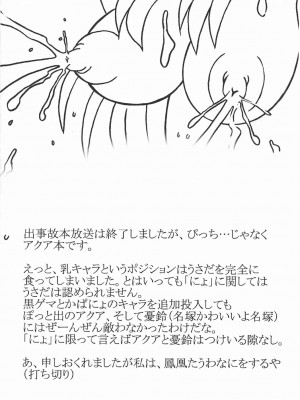 出事故本放送は終了しましたが、びっち…じゃなく
アクア本です。
えっと、乳キャラというポジションはうさだを完全に
食ってしまいました。とはいっても「にょ」に関して
は認められません。
黒ゲマとかばにょのキャラを追加投入しても
ぽっと出のアクア、そして憂鈴（名塚かわいいよ名塚）
にはぜーんぜん敵わなかったわけだな。
「にょ」に限って言えばアクアと憂鈴はつけいる隙なし。
あ、申しおくれましたが私は、鳳凰たうわなにをするや
（打ち切り）